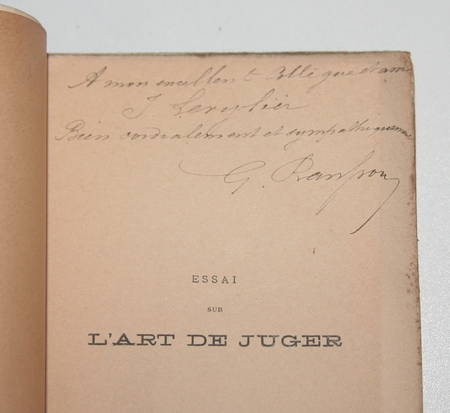 A mon excellent collègue et ami
J
Bien cordialement et sympathiquement
G. Ransson
ESSAI
SUR
L'ART DE JUGER